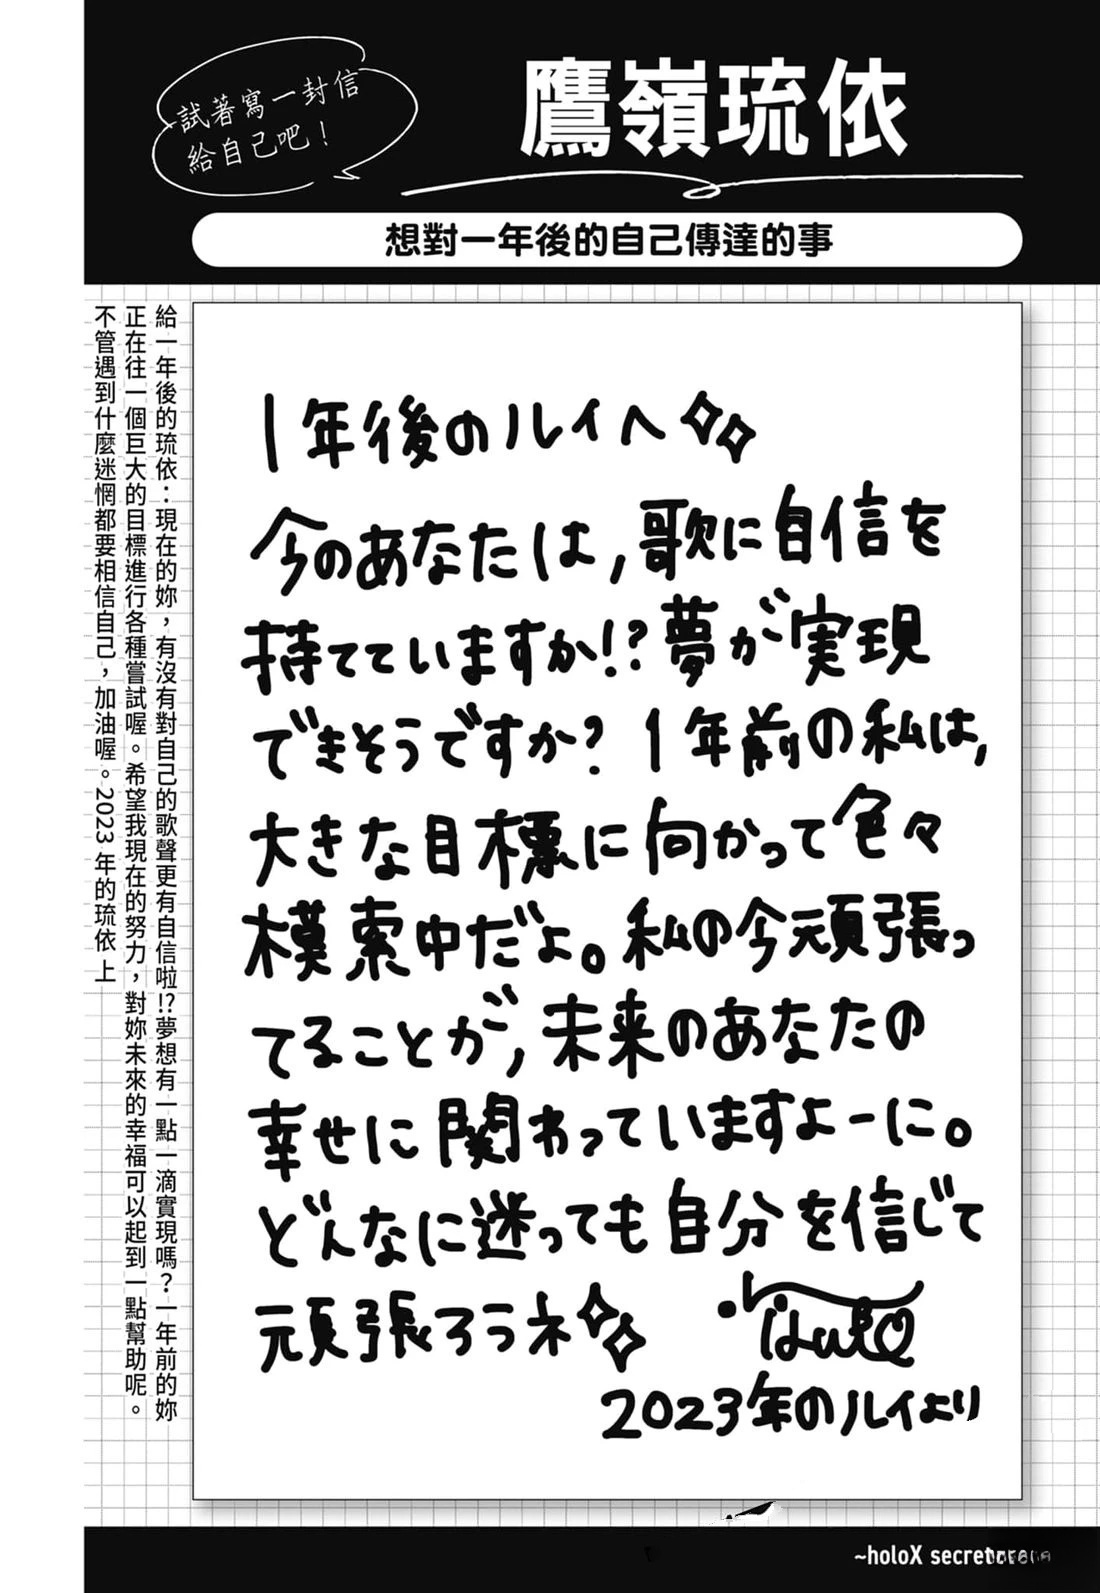 試著寫一封信
給自己吧！
鷹嶺琉依
想對一年後的自己傳達的事
1年後のルイへ
今のあなたは,歌に自信を
持てていますか!?夢が実現
できそうですか? 1年前の私は,
大きな目標に向かって色々
模索中だよ。私の今頑張っ
てることが,未来のあなたの
幸せに関わっていますよーに。
どんなに迷っても自分を信じて
頑張ろうネ
2023年のルイより
給一年後的琉依：現在的妳，有沒有對自己的歌聲更有自信啦!?夢想有一點一滴實現嗎？一年前的妳
正在往一個巨大的目標進行各種嘗試喔。希望我現在的努力，對妳未來的幸福可以起到一點幫助呢。
不管遇到什麼迷惘都要相信自己，加油喔。2023 年的琉依 上
~holoX